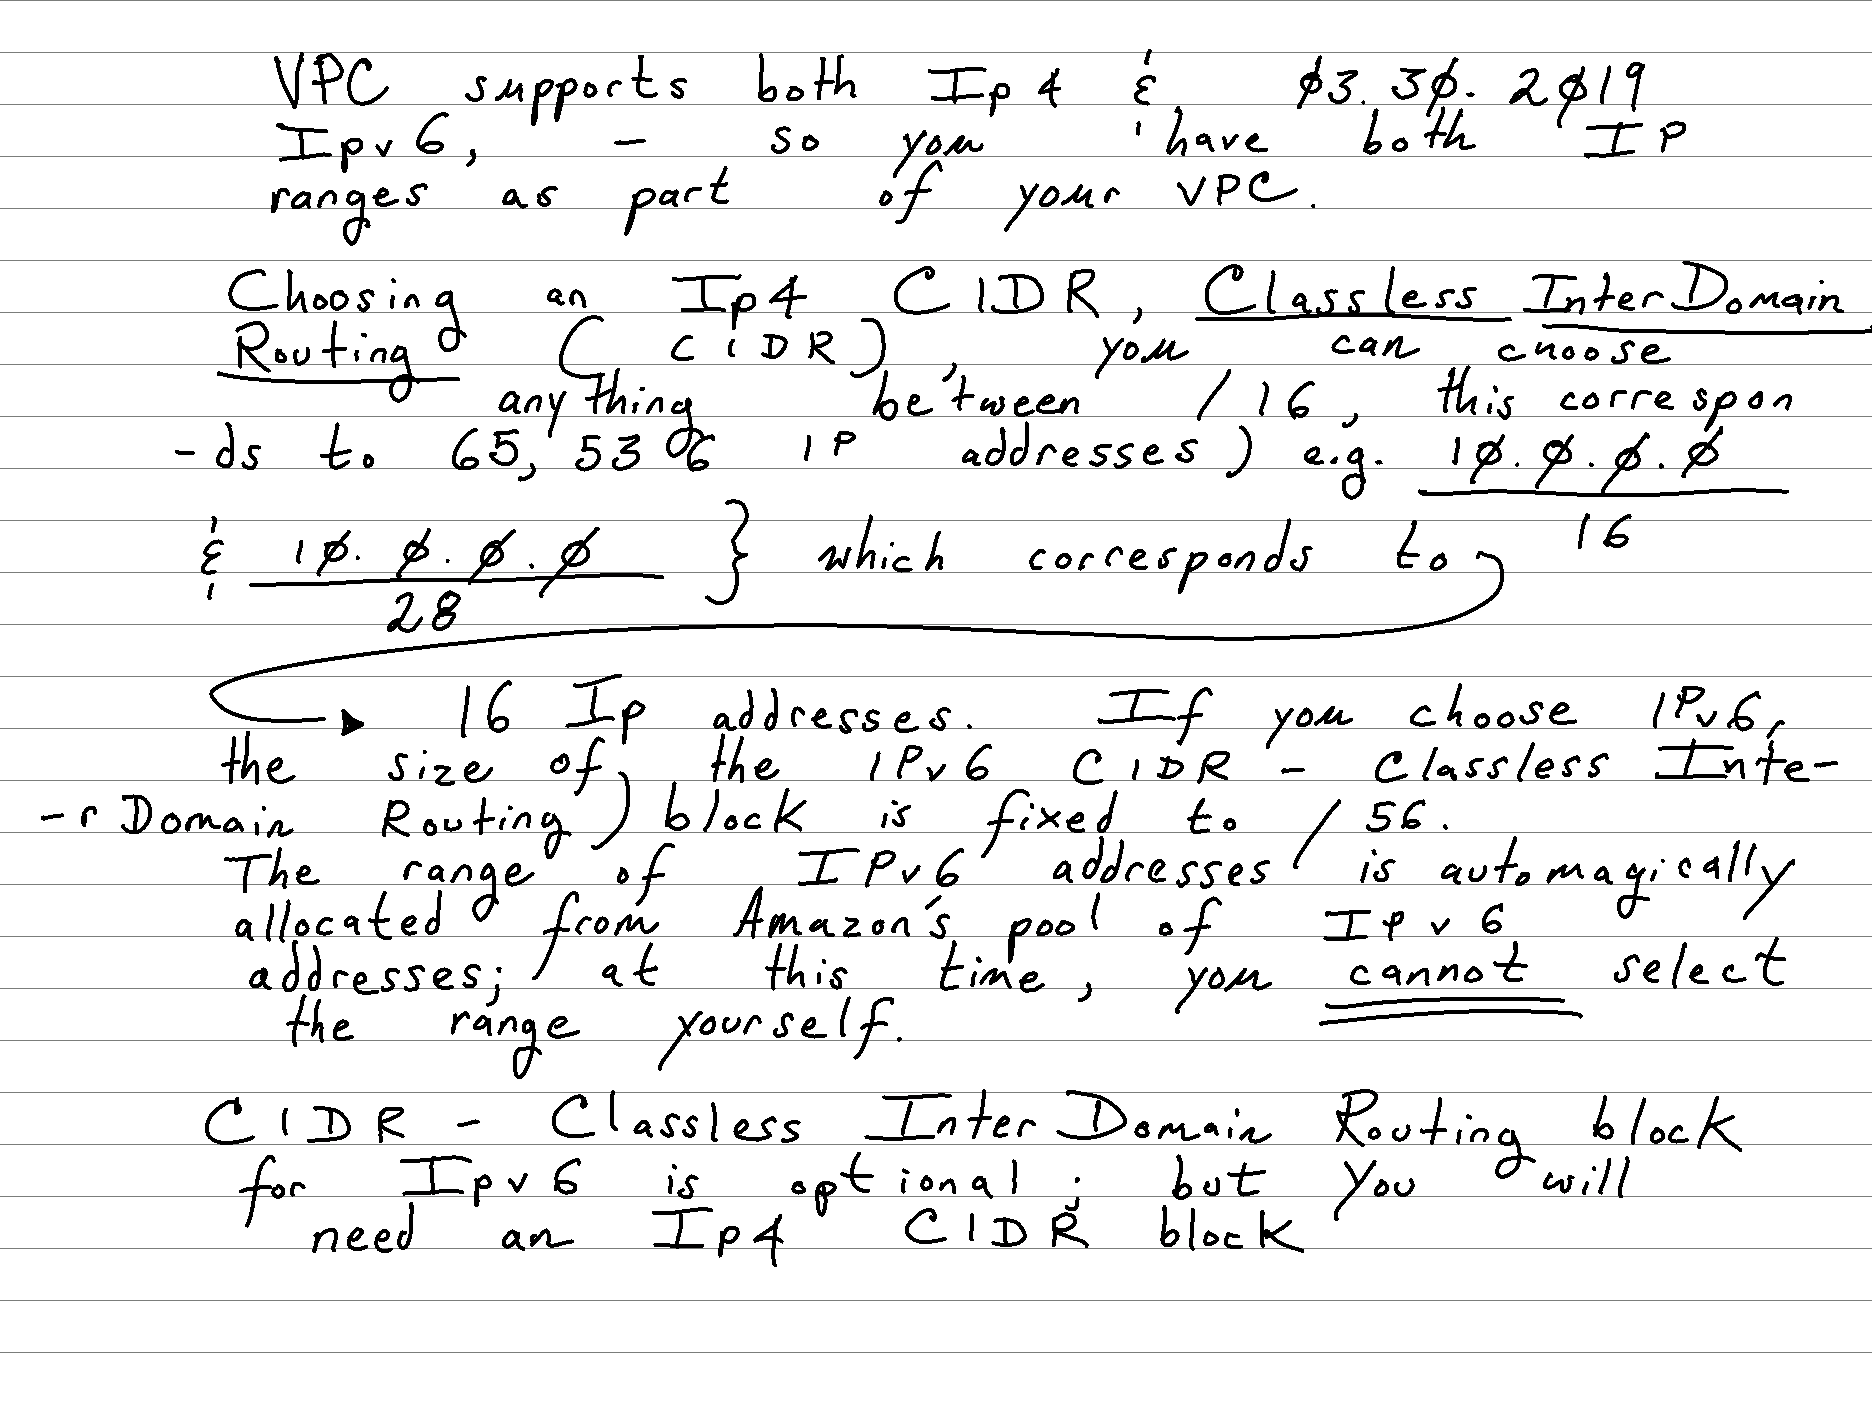 VPC supports both Ip4 & 03.30.2019
Ipv6, - so you have both IP
ranges as part of your VPC.
Choosing an Ip4 CIDR, Classless InterDomain
Routing (CIDR), you can choose
anything between /16, this correspon
-ds to 65,536 IP addresses) e.g. 10.0.0.0
16
& 10.0.0.0 } which corresponds to
28
16 Ip addresses. If you choose IPv6,
the size of the IPv6 CIDR - Classless Inte-
-r Domain Routing) block is fixed to /56.
The range of IPv6 addresses is automagically
allocated from Amazon's pool of IPv6
addresses; at this time, you cannot select
the range yourself.
CIDR - Classless InterDomain Routing block
for Ipv6 is optional; but you will
need an Ip4 CIDR block